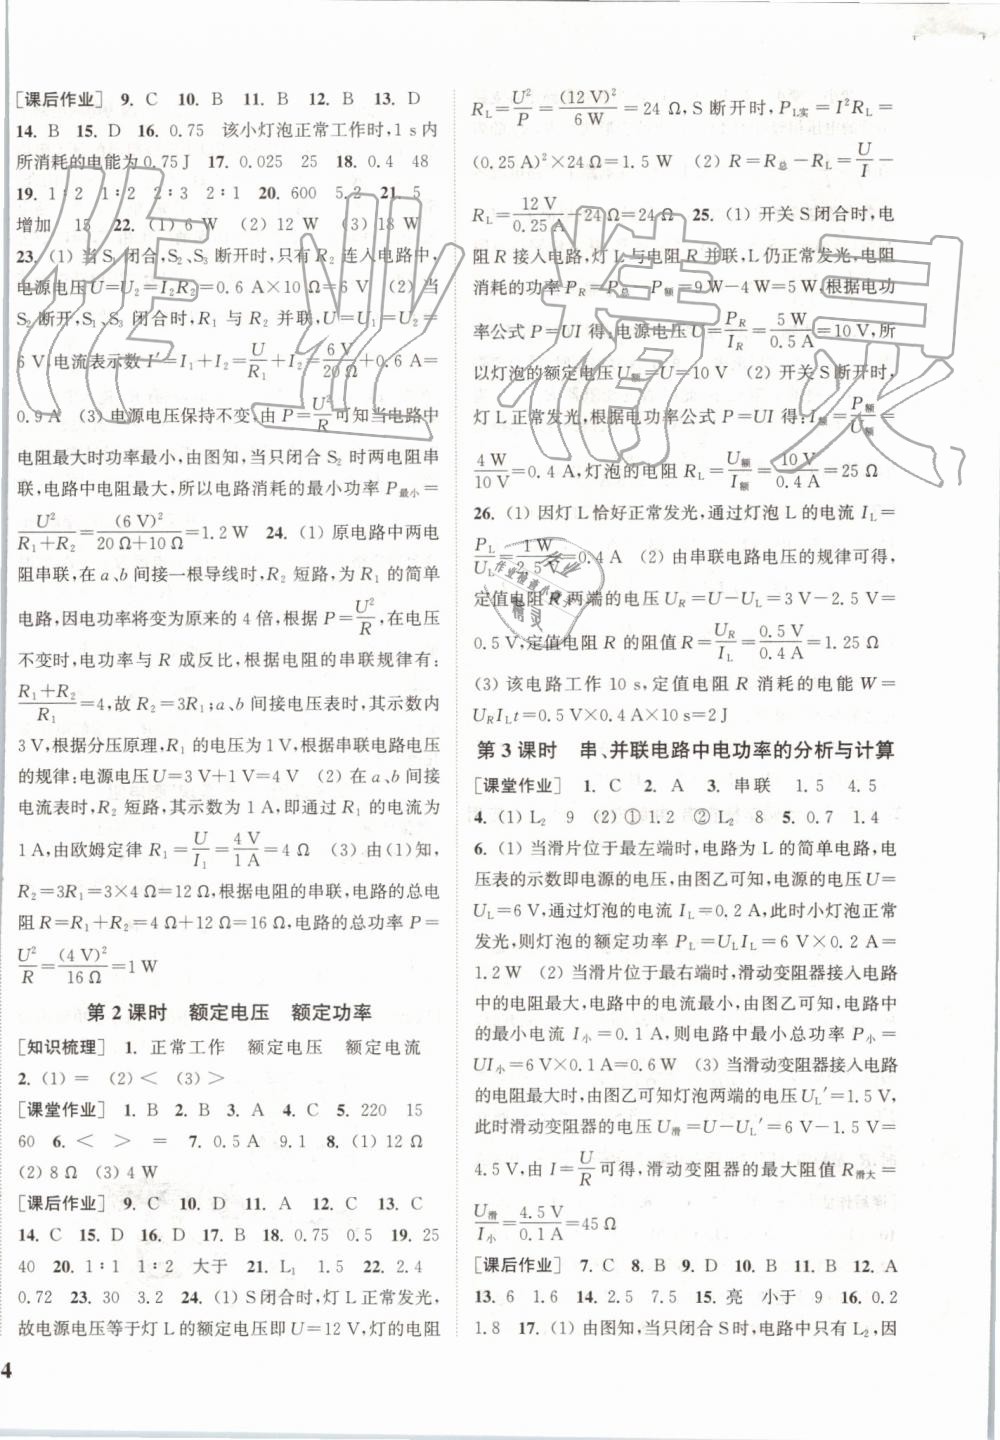 [课后作业] 9. C 10. B 11. B 12. B 13. D
14. B 15. D 16. 0.75 该小灯泡正常工作时,1 s内
所消耗的电能为0.75 J 17. 0.025 25 18. 0.4 48
19. 1∶2 1∶2 2∶3 2∶1 20. 600 5.2 21. 5
增加 15 22. (1) 6 W (2) 12 W (3) 18 W
23. (1) 当S₁闭合,S₂、S₃断开时,只有R₂连入电路中,
电源电压U=U₂=I₂R₂=0.6 A×10 Ω=6 V (2) 当
S₂断开,S₁、S₃闭合时,R₁与R₂并联,U=U₁=U₂=
6 V,电流表示数I′=I₁+I₂=U/R₁+I₂=6 V/20 Ω+0.6 A=
0.9 A (3) 电源电压保持不变,由P=U²/R可知当电路中
电阻最大时功率最小,由图知,当只闭合S₂时两电阻串
联,电路中电阻最大,所以电路消耗的最小功率P最小=
U²/(R₁+R₂)=(6 V)²/(20 Ω+10 Ω)=1.2 W 24. (1) 原电路中两电
阻串联,在a、b间接一根导线时,R₂短路,为R₁的简单
电路,因电功率将变为原来的4倍,根据P=U²/R,在电压
不变时,电功率与R成反比,根据电阻的串联规律有:
(R₁+R₂)/R₁=4,故R₂=3R₁;a、b间接电压表时,其示数为
3 V,根据分压原理,R₁的电压为1 V,根据串联电路电压
的规律:电源电压U=3 V+1 V=4 V (2) 在a、b间接
电流表时,R₂短路,其示数为1 A,即通过R₁的电流为
1 A,由欧姆定律R₁=U/I₁=4 V/1 A=4 Ω (3) 由(1)知,
R₂=3R₁=3×4 Ω=12 Ω,根据电阻的串联,电路的总电
阻R=R₁+R₂=4 Ω+12 Ω=16 Ω,电路的总功率P=
U²/R=(4 V)²/16 Ω=1 W
第2课时 额定电压 额定功率
[知识梳理] 1. 正常工作 额定电压 额定电流
2. (1) = (2) < (3) >
[课堂作业] 1. B 2. B 3. A 4. C 5. 220 15
60 6. < > = 7. 0.5 A 9.1 8. (1) 12 Ω
(2) 8 Ω (3) 4 W
[课后作业] 9. C 10. D 11. A 12. C 13. C
14. C 15. D 16. D 17. B 18. 0.75 0.5 19. 25
40 20. 1∶1 1∶2 大于 21. L₁ 1.5 22. 2.4
0.72 23. 30 3.2 24. (1) S闭合时,灯L正常发光,
故电源电压等于灯L的额定电压即U=12 V,灯的电阻
4
R_L=U²/P=(12 V)²/6 W=24 Ω,S断开时,P_L实=I²R_L=
(0.25 A)²×24 Ω=1.5 W (2) R=R总-R_L=U/I-
R_L=12 V/0.25 A-24 Ω=24 Ω 25. (1) 开关S闭合时,电
阻R接入电路,灯L与电阻R并联,L仍正常发光,电阻
消耗的功率P_R=P总-P额=9 W-4 W=5 W,根据电功
率公式P=UI得:电源电压U=P_R/I_R=5 W/0.5 A=10 V,所
以灯泡的额定电压U额=U=10 V (2) 开关S断开时,
灯L正常发光,根据电功率公式P=UI得:I额=P额/U额=
4 W/10 V=0.4 A,灯泡的电阻R_L=U额/I额=10 V/0.4 A=25 Ω
26. (1) 因灯L恰好正常发光,通过灯泡L的电流I_L=
P_L/U_L=1 W/2.5 V=0.4 A (2) 由串联电路电压的规律可得,
定值电阻R两端的电压U_R=U-U_L=3 V-2.5 V=
0.5 V,定值电阻R的阻值R=U_R/I_L=0.5 V/0.4 A=1.25 Ω
(3) 该电路工作10 s,定值电阻R消耗的电能W=
U_R I_L t=0.5 V×0.4 A×10 s=2 J
第3课时 串、并联电路中电功率的分析与计算
[课堂作业] 1. C 2. A 3. 串联 1.5 4.5
4. (1) L₂ 9 (2) ① 1.2 ② L₂ 8 5. 0.7 1.4
6. (1) 当滑片位于最左端时,电路为L的简单电路,电
压表的示数即电源的电压,由图乙可知,电源的电压U=
U_L=6 V,通过灯泡的电流I_L=0.2 A,此时小灯泡正常
发光,则灯泡的额定功率P_L=U_L I_L=6 V×0.2 A=
1.2 W (2) 当滑片位于最右端时,滑动变阻器接入电路
中的电阻最大,电路中的电流最小,由图乙可知,电路中
的最小电流I小=0.1 A,则电路中最小总功率P小=
UI小=6 V×0.1 A=0.6 W (3) 当滑动变阻器接入电路
的电阻最大时,由图乙可知灯泡两端的电压U_L′=1.5 V,
此时滑动变阻器的电压U滑=U-U_L′=6 V-1.5 V=
4.5 V,由I=U/R可得,滑动变阻器的最大阻值R滑大=
U滑/I小=4.5 V/0.1 A=45 Ω
[课后作业] 7. C 8. B 9. D 10. B 11. B 12. A
13. 6 1.6 14. 2.5 7.5 15. 亮 小于 9 16. 0.2
1.8 17. (1) 由图知,当只闭合S时,电路中只有L₂,因
作业精灵